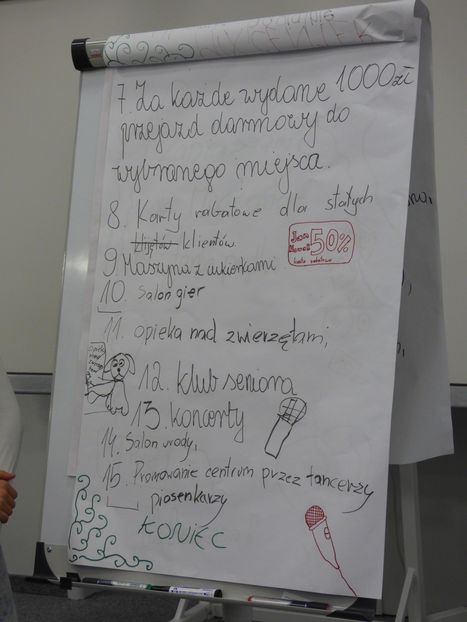 7. Za każde wydane 1000zł
przejazd darmowy do
wybranego miejsca.
8. Karty rabatowe dla stałych
klientów
50%
9. Maszyna z cukierkami
10. Salon gier
11. opieka nad zwierzętami,
12. klub seniora
13. koncerty
14. Salon urody,
15. Promowanie centrum przez tancerzy
piosenkarzy
KONIEC